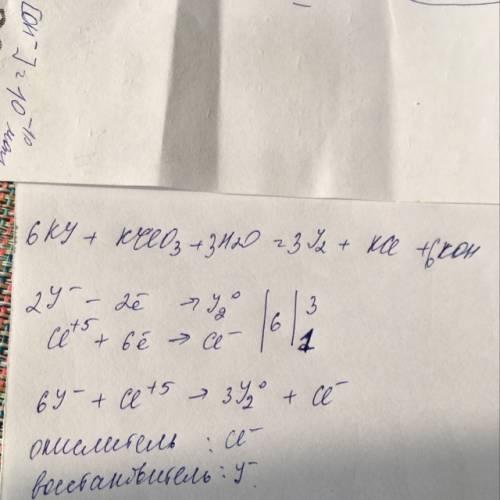 [OH⁻] = 10⁻¹⁰
6KY + KClO₃ + 3H₂O = 3Y₂ + KCl + 6KOH
2Y⁻ - 2ē → Y₂⁰ | 6 | 3
Cl⁺⁵ + 6ē → Cl⁻ | 1
6Y⁻ + Cl⁺⁵ → 3Y₂⁰ + Cl⁻
окислитель : Cl⁻
восстановитель : Y⁻